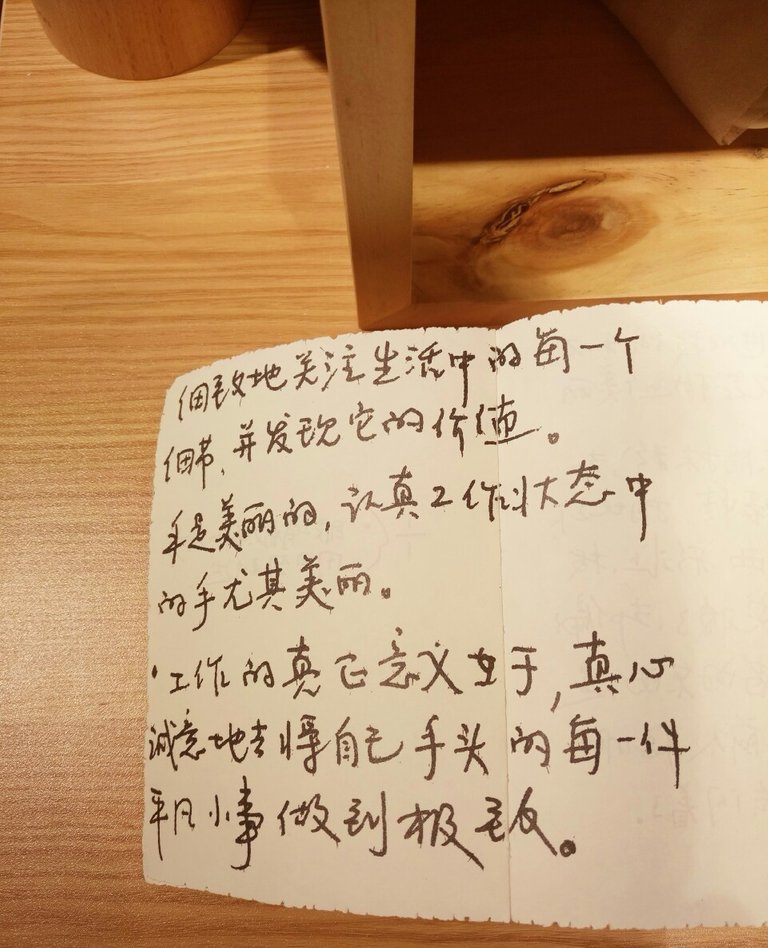 细致地关注生活中的每一个
细节,并发现它的价值。
手是美丽的,认真工作状态中
的手尤其美丽。
·工作的真正意义在于,真心
诚意地去将自己手头的每一件
平凡小事做到极致。